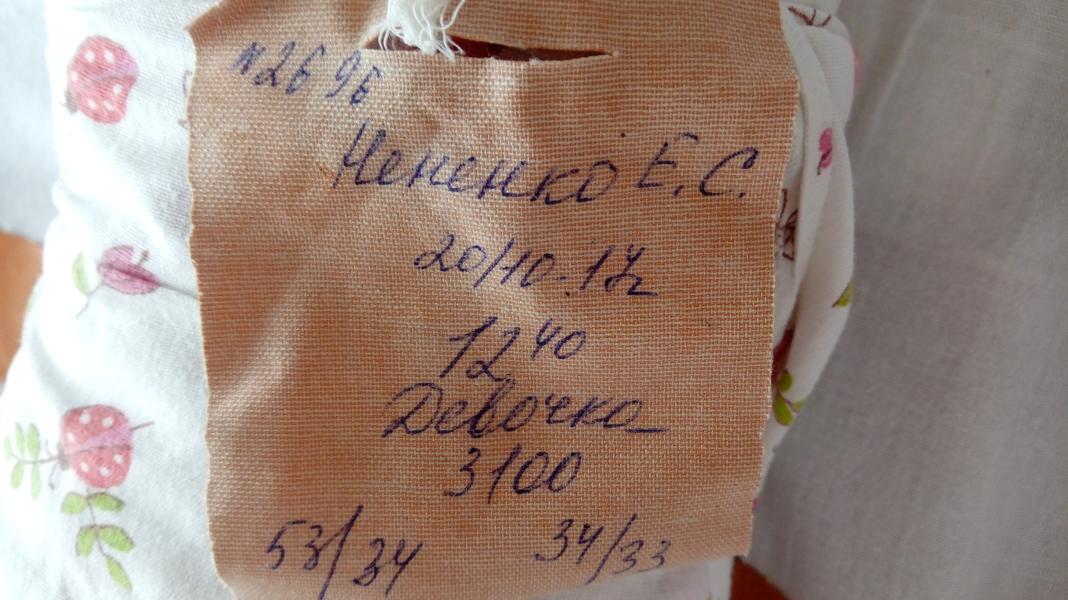 N2696
Чененко Е.С.
20/10-17г
12⁴⁰
Девочка
3100
53/34 34/33